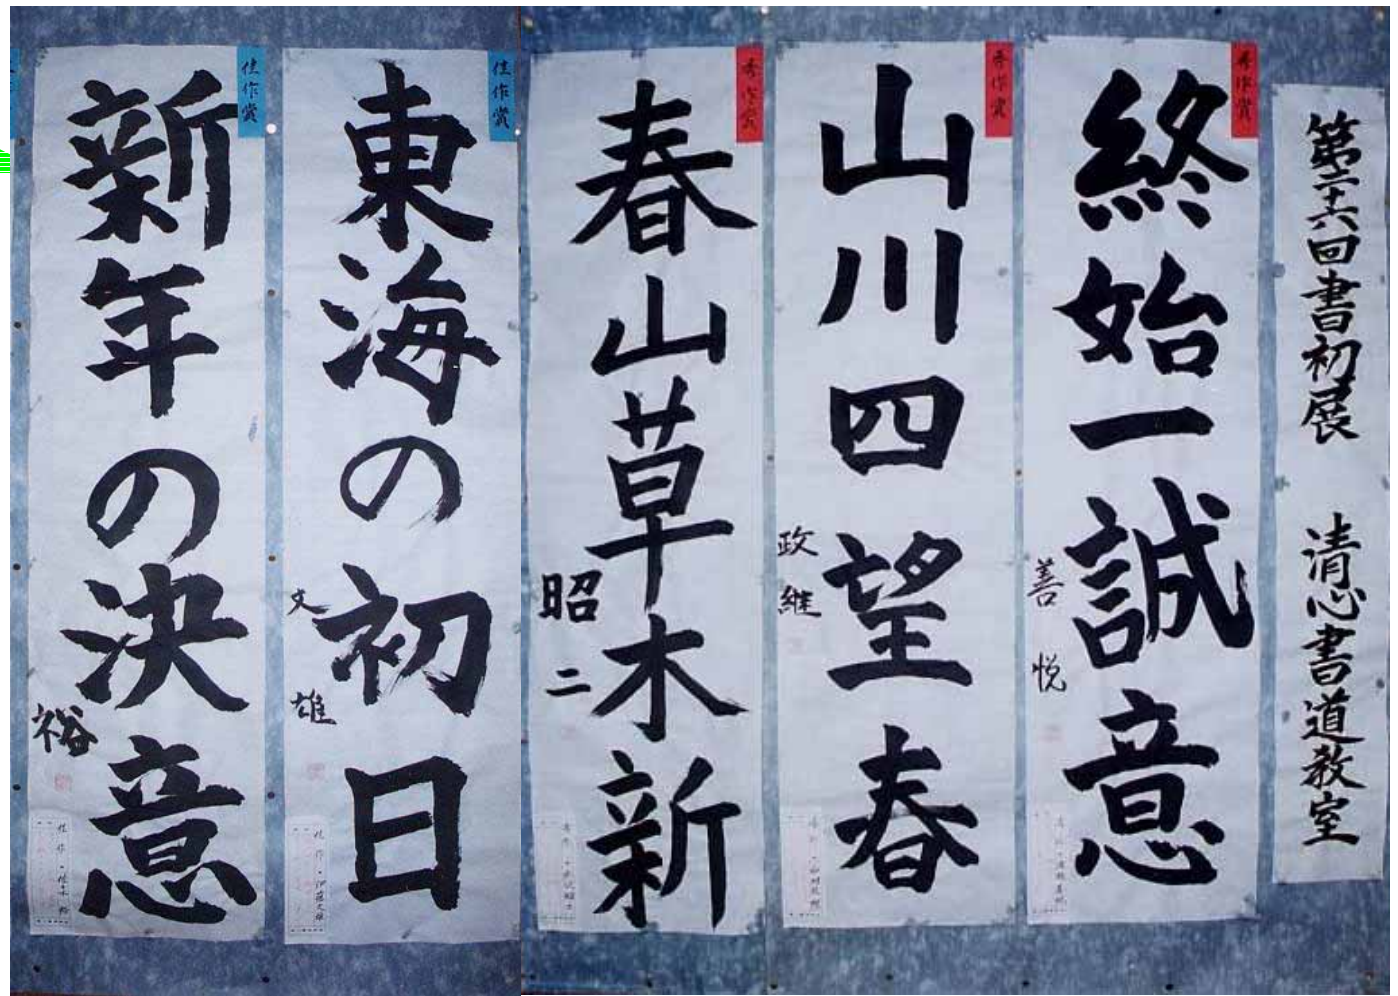 第二十六回書初展　清心書道教室
秀作賞
終始一誠意
善悦
秀作賞
山川四望春
政維
秀作賞
春山草木新
昭二
佳作賞
東海の初日
文雄
佳作賞
新年の決意
裕